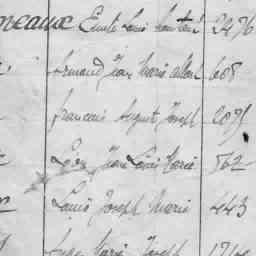 neaux Emile Louis 2476
Armand Jean Marie Albert 608
François August Joseph 2035
Léon Jean Louis Marie 562
Louis Joseph Marie 443
Marie Joseph